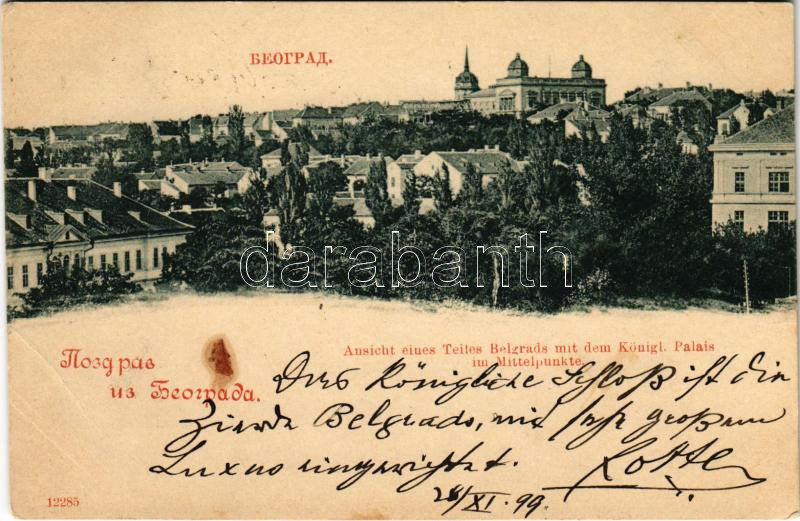 БЕОГРАД.
darabanth
Ansicht eines Teiles Belgrads mit dem Königl. Palais
im Mittelpunkte.
Поздрав
из Београда.
Das Königliche Schloß ist ein
Zierde Belgrads, mit sehr großem
Luxus eingerichtet.
Lotte
24/XI. 99.
12285